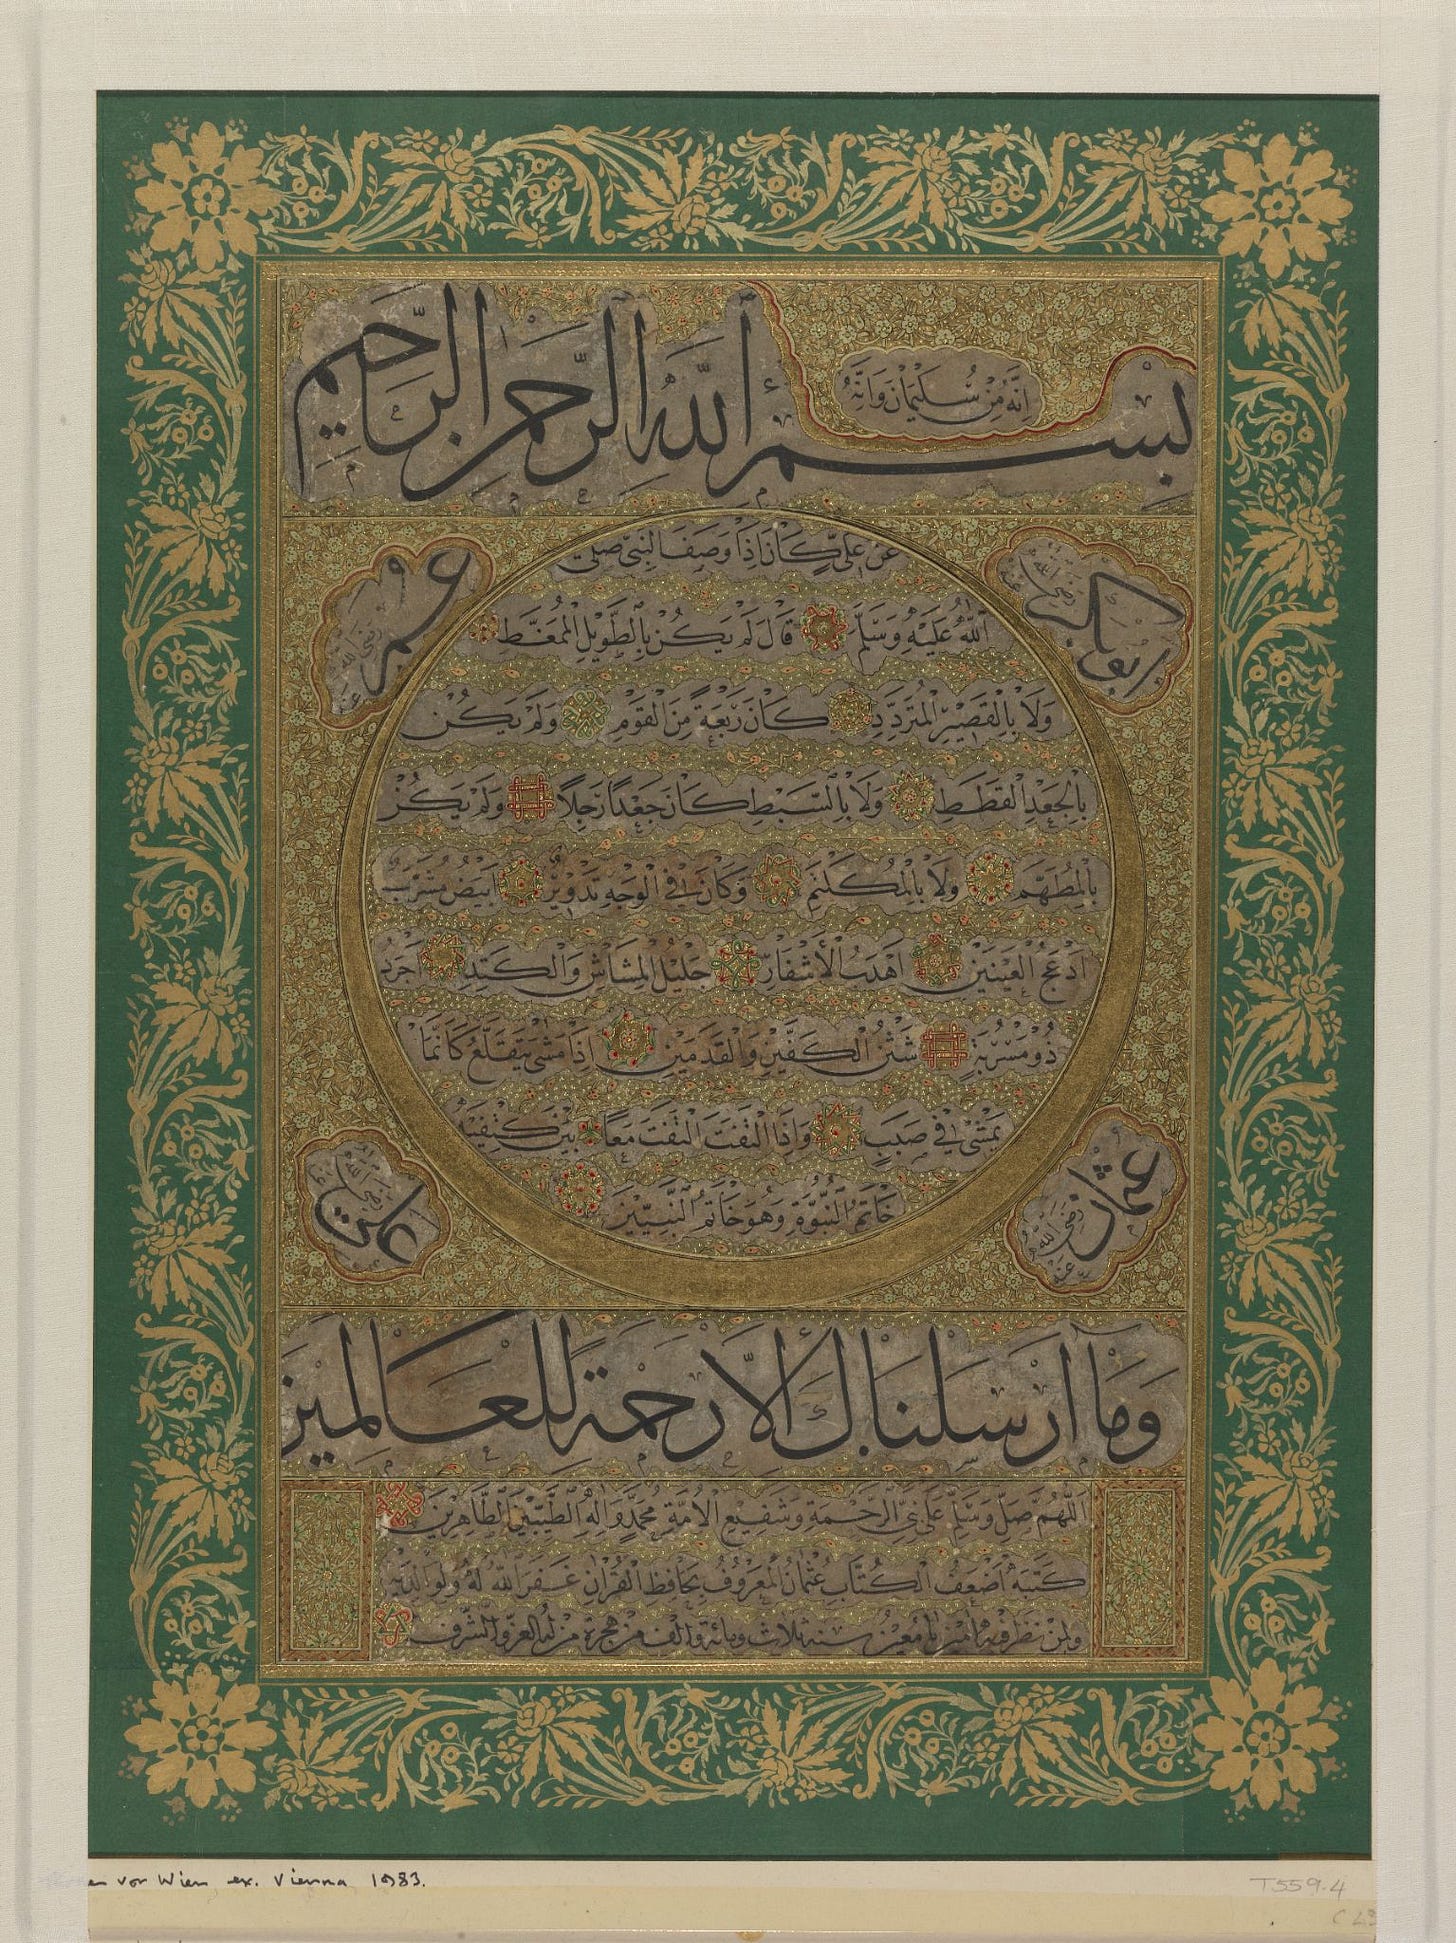 إِنَّهُ مِنْ سُلَيْمَانَ وَإِنَّهُ
بِسْمِ اللَّهِ الرَّحْمَنِ الرَّحِيمِ
ابو بكر رضى الله عنه
عمر رضى الله عنه
عَنْ عَلِىٍّ كَانَ اِذَا وَصَفَ النَّبِىَّ صَلَّى
اللَّهُ عَلَيْهِ وَسَلَّمَ قَالَ لَمْ يَكُنْ بِالطَّوِيلِ الْمُمَغَّطِ
وَلَا بِالْقَصِيرِ الْمُتَرَدِّدِ كَانَ رَبْعَةً مِنَ الْقَوْمِ وَلَمْ يَكُنْ
بِالْجَعْدِ الْقَطَطِ وَلَا بِالسَّبْطِ كَانَ جَعْدًا رَجِلًا وَلَمْ يَكُنْ
بِالْمُطَهَّمِ وَلَا بِالْمُكَلْثَمِ وَكَانَ فِى الْوَجْهِ تَدْوِيرٌ اَبْيَضُ مُشْرَبٌ
اَدْعَجُ الْعَيْنَيْنِ اَهْدَبُ الْأَشْفَارِ جَلِيلُ الْمُشَاشِ وَالْكَتَدِ اَجْرَدُ
ذُو مَسْرُبَةٍ شَثْنُ الْكَفَّيْنِ وَالْقَدَمَيْنِ اِذَا مَشٰى يَتَقَلَّعُ كَاَنَّمَا
يَمْشِى فِى صَبَبٍ وَاِذَا الْتَفَتَ الْتَفَتَ مَعًا بَيْنَ كَتِفَيْهِ
خَاتَمُ النُّبُوَّةِ وَهُوَ خَاتَمُ النَّبِيِّينَ
عثمان رضى الله عنه
على رضى الله عنه
وَمَا أَرْسَلْنَاكَ إِلَّا رَحْمَةً لِلْعَالَمِينَ
اَللّٰهُمَّ صَلِّ وَسَلِّمْ عَلٰى نَبِىِّ الرَّحْمَةِ وَشَفِيعِ الْاُمَّةِ مُحَمَّدٍ وَاٰلِهِ الطَّيِّبِينَ الطَّاهِرِينَ
كَتَبَهُ اَضْعَفُ الْكُتَّابِ عُثْمَانُ الْمَعْرُوفُ بِحَافِظِ الْقُرْاٰنِ غَفَرَ اللَّهُ لَهُ وَلِوَالِدَيْهِ
وَلِمَنْ نَظَرَ فِيهِ اٰمِينَ يَا مُعِينُ سنة ثلاث ومائة والف من هجرة من له العز والشرف
vor Wien ex. Vienna 1983.
T559.4